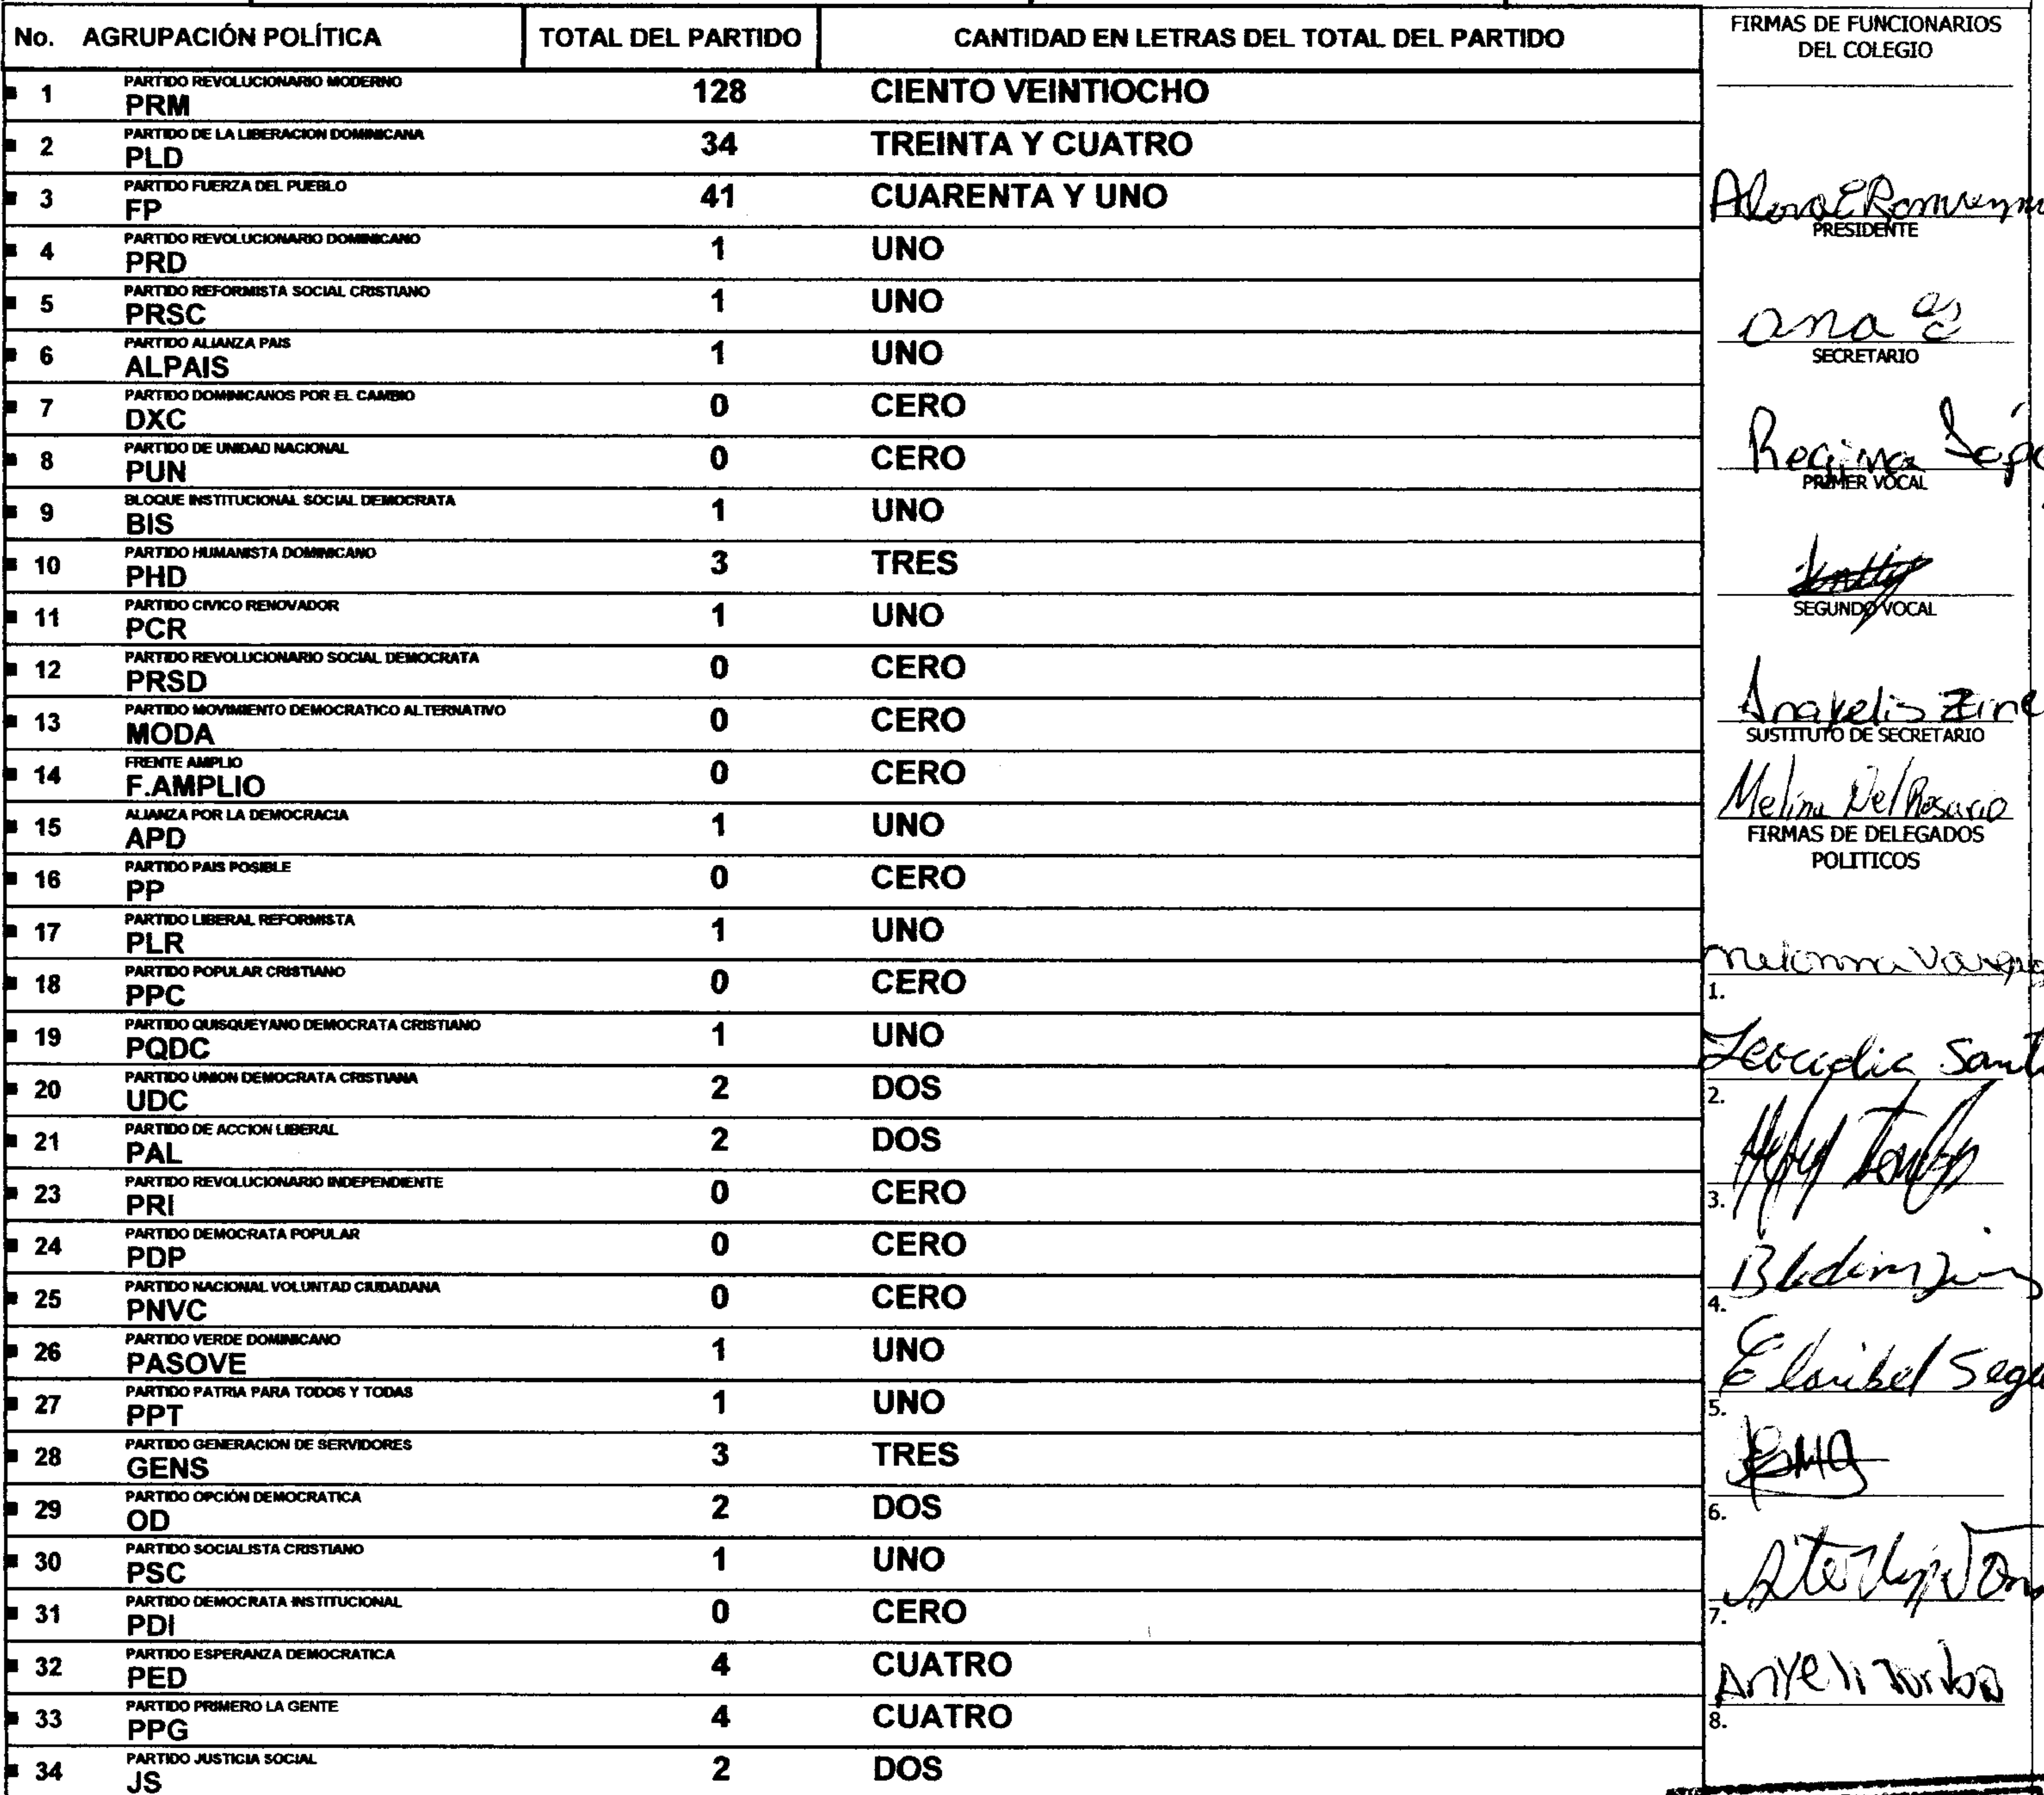 No. AGRUPACIÓN POLÍTICA TOTAL DEL PARTIDO CANTIDAD EN LETRAS DEL TOTAL DEL PARTIDO
PARTIDO REVOLUCIONARIO MODERNO
1 PRM 128 CIENTO VEINTIOCHO
PARTIDO DE LA LIBERACION DOMINICANA
2 PLD 34 TREINTA Y CUATRO
PARTIDO FUERZA DEL PUEBLO
3 FP 41 CUARENTA Y UNO
PARTIDO REVOLUCIONARIO DOMINICANO
4 PRD 1 UNO
PARTIDO REFORMISTA SOCIAL CRISTIANO
5 PRSC 1 UNO
PARTIDO ALIANZA PAIS
6 ALPAIS 1 UNO
PARTIDO DOMINICANOS POR EL CAMBIO
7 DXC 0 CERO
PARTIDO DE UNIDAD NACIONAL
8 PUN 0 CERO
BLOQUE INSTITUCIONAL SOCIAL DEMOCRATA
9 BIS 1 UNO
PARTIDO HUMANISTA DOMINICANO
10 PHD 3 TRES
PARTIDO CIVICO RENOVADOR
11 PCR 1 UNO
PARTIDO REVOLUCIONARIO SOCIAL DEMOCRATA
12 PRSD 0 CERO
PARTIDO MOVIMIENTO DEMOCRATICO ALTERNATIVO
13 MODA 0 CERO
FRENTE AMPLIO
14 F.AMPLIO 0 CERO
ALIANZA POR LA DEMOCRACIA
15 APD 1 UNO
PARTIDO PAIS POSIBLE
16 PP 0 CERO
PARTIDO LIBERAL REFORMISTA
17 PLR 1 UNO
PARTIDO POPULAR CRISTIANO
18 PPC 0 CERO
PARTIDO QUISQUEYANO DEMOCRATA CRISTIANO
19 PQDC 1 UNO
PARTIDO UNION DEMOCRATA CRISTIANA
20 UDC 2 DOS
PARTIDO DE ACCION LIBERAL
21 PAL 2 DOS
PARTIDO REVOLUCIONARIO INDEPENDIENTE
23 PRI 0 CERO
PARTIDO DEMOCRATA POPULAR
24 PDP 0 CERO
PARTIDO NACIONAL VOLUNTAD CIUDADANA
25 PNVC 0 CERO
PARTIDO VERDE DOMINICANO
26 PASOVE 1 UNO
PARTIDO PATRIA PARA TODOS Y TODAS
27 PPT 1 UNO
PARTIDO GENERACION DE SERVIDORES
28 GENS 3 TRES
PARTIDO OPCIÓN DEMOCRATICA
29 OD 2 DOS
PARTIDO SOCIALISTA CRISTIANO
30 PSC 1 UNO
PARTIDO DEMOCRATA INSTITUCIONAL
31 PDI 0 CERO
PARTIDO ESPERANZA DEMOCRATICA
32 PED 4 CUATRO
PARTIDO PRIMERO LA GENTE
33 PPG 4 CUATRO
PARTIDO JUSTICIA SOCIAL
34 JS 2 DOS
FIRMAS DE FUNCIONARIOS
DEL COLEGIO
PRESIDENTE
ana
SECRETARIO
Regina
PRIMER VOCAL
SEGUNDO VOCAL
Anakelis
SUSTITUTO DE SECRETARIO
Melina Del Rosario
FIRMAS DE DELEGADOS
POLITICOS
1.
Leocadia
2.
3.
4.
5.
6.
7.
8.